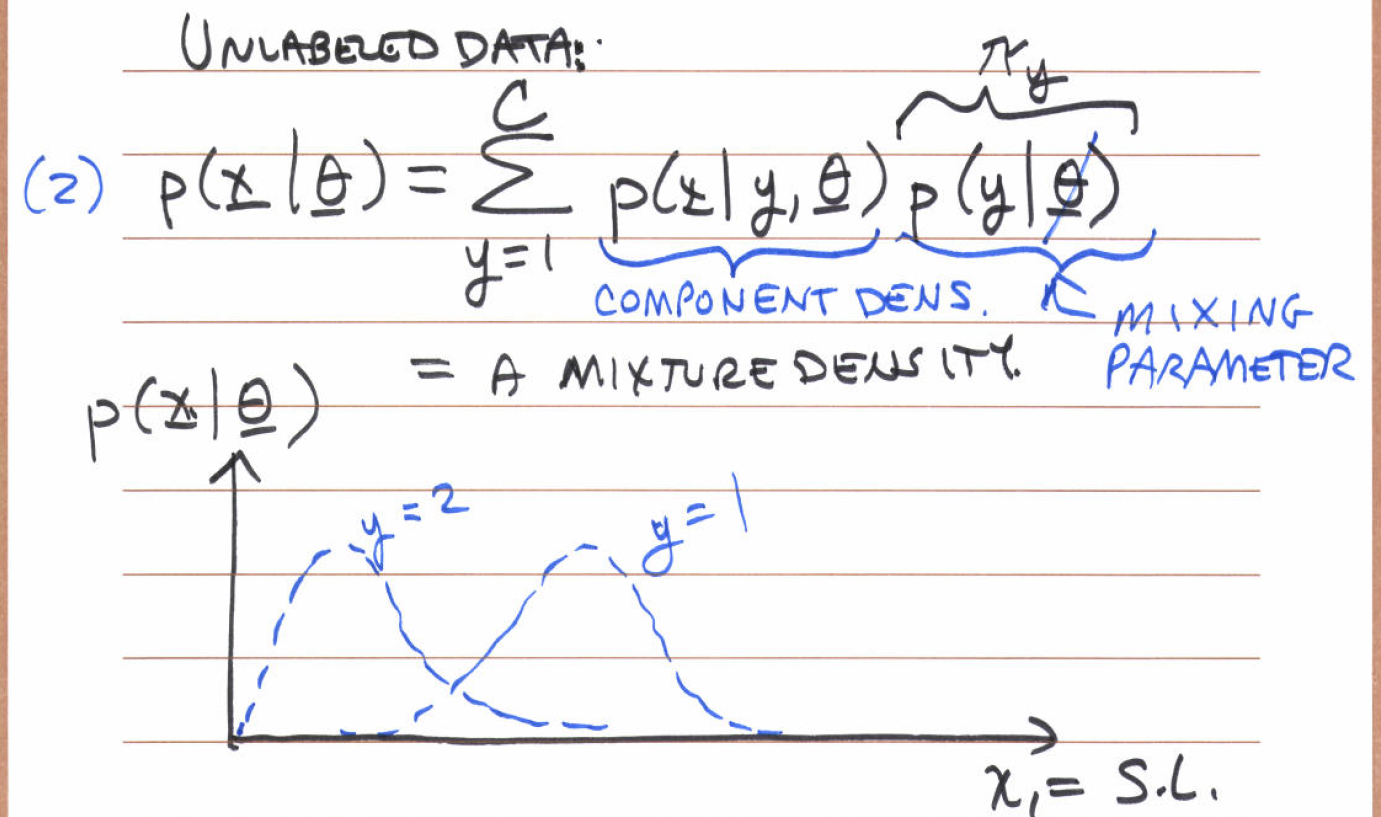 UNLABELED DATA:
π_y
(2) p(x|θ) = Σ_{y=1}^{C} p(x|y,θ) p(y|θ)
COMPONENT DENS. MIXING
PARAMETER
= A MIXTURE DENSITY.
p(x|θ)
y=2
y=1
x₁ = S.L.